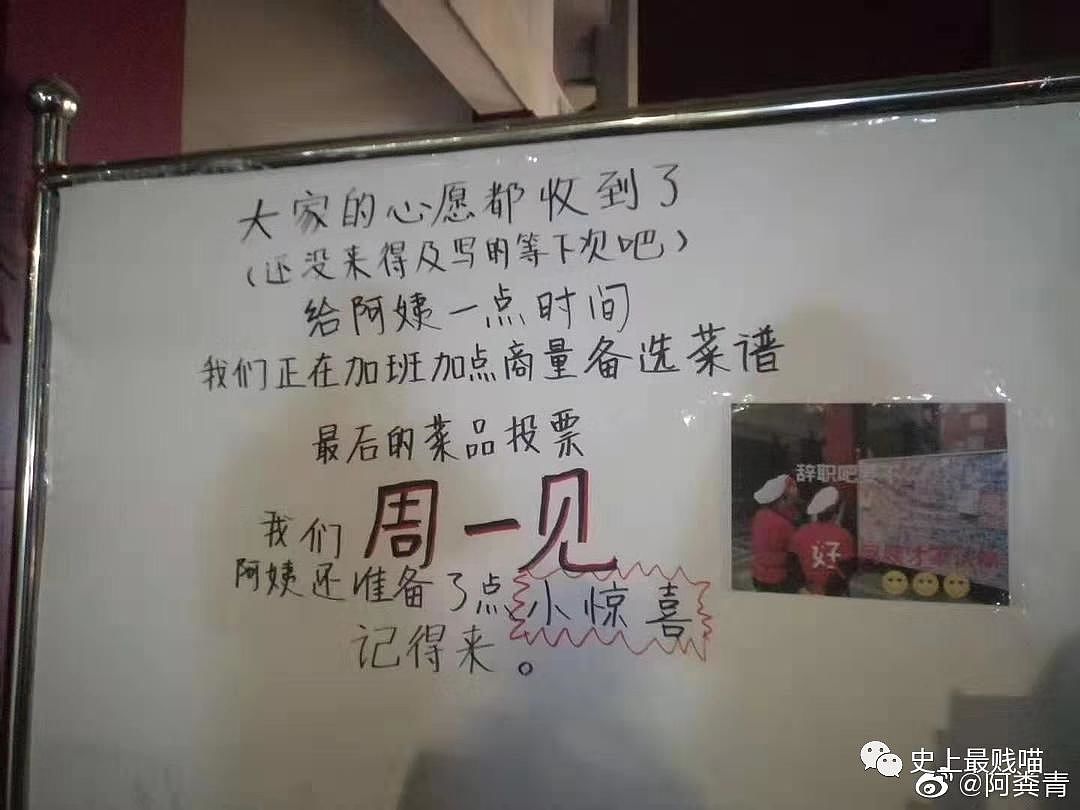 大家的心愿都收到了
(还没来得及写的等下次吧)
给阿姨一点时间
我们正在加班加点商量备选菜谱
最后的菜品投票
我们周一见
阿姨还准备了点小惊喜
记得来。
辞职吧要不
好
史上最贱喵
@阿粪青